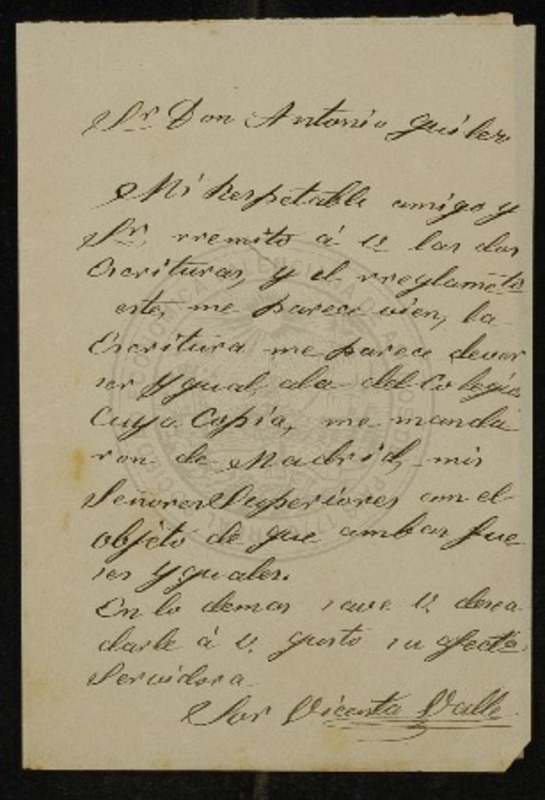 Sr Don Antonio Guiller
Mi rrespetable amigo y
Sr, rremito á V. las dos
Escrituras, y el rreglamento
este, me parece vien, la
Escritura me parece devar
ser Ygual, ala del Colegio
Cuya Copia, me manda
ron de Madrid, mis
Señores Superiores con el
objeto de que ambas fue
ses Yguales.
En lo demas save V. desea
darle á V. gusto su afectᵃ
Servidora
Sor Vicenta Valle